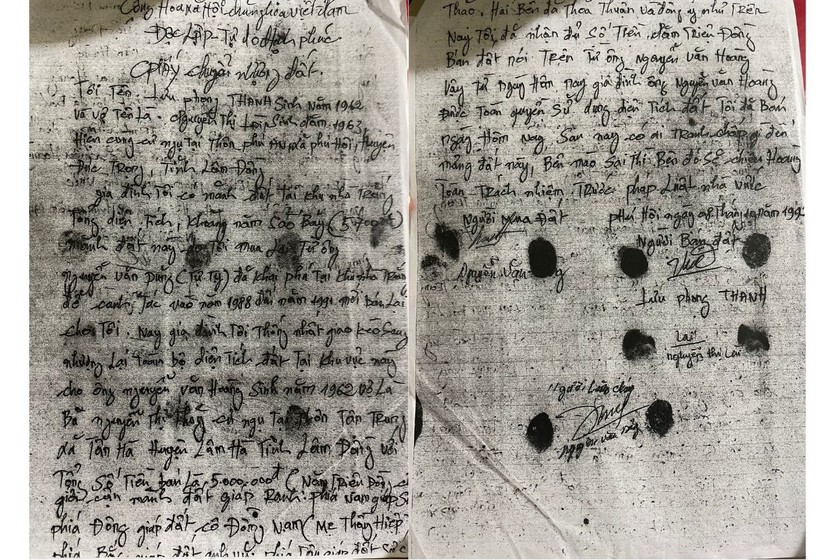 Cộng Hoà Xã Hội Chủ nghĩa Việt Nam
Độc lập Tự do Hạnh phúc
Giấy chuyển nhượng đất.
Tôi Tên. Lưu phong THANH Sinh năm 1962
và vợ Tên Là. Nguyễn Thị Lại Sinh năm 1963
Hiện cùng cư ngụ tại Thôn phú AN xã phú Hội, Huyện
Đức Trọng, Tỉnh Lâm Đồng
gia đình Tôi có mảnh đất tại khu nhà Trắng
Tổng diện Tích, khoảng năm Sào Bảy (5700
mảnh đất này Tôi mua Lại Từ ông
nguyễn văn Dũng (Tự Tỵ) đã khai phá Tại
để canh Tác vào năm 1988 đến năm 1991 mới Lại
cho Tôi. Nay gia đình Tôi Thống nhất giao
nhượng Lại toàn bộ diện Tích đất Tại khu vực này
cho ông nguyễn văn Hoàng Sinh năm 1962 Vợ Là
Bà nguyễn Thị Thắng cư ngụ Tại Thôn Tân Trung
xã Tân Hà Huyện Lâm Hà Tỉnh Lâm Đồng với
Tổng Số Tiền bán Là 5.000.000đ (Năm Triệu Đồng
giới cận mảnh đất giáp Ranh. phía Nam giáp
phía Đông giáp đất cô Đồng Nam (Mẹ Thắng Hiệp
phía Bắc giáp đất phía Tây giáp đất
Thảo. Hai Bên đã Thoả Thuận và đồng ý như Trên
Nay Tôi đã nhận đủ Số Tiền, Năm Triệu Đồng
Bán đất nói Trên Từ ông nguyễn văn Hoàng
Vậy từ ngày Hôm nay gia đình ông Nguyễn văn Hoàng
Được Toàn quyền Sử dụng diện Tích đất Tôi đã Bán
ngày Hôm nay, Sau này có ai Tranh chấp gì đến
mảng đất này, Bên nào Sai Thì Bên đó Sẽ chịu Hoàng
Toàn Trách nhiệm Trước pháp Luật nhà nước
Người Mua Đất phú Hội ngày Tháng năm 199
Người Bán đất
Nguyễn Văn
Lưu phong THANH
Lại
nguyễn thị Lại
Người Làm chứng
nguyễn văn